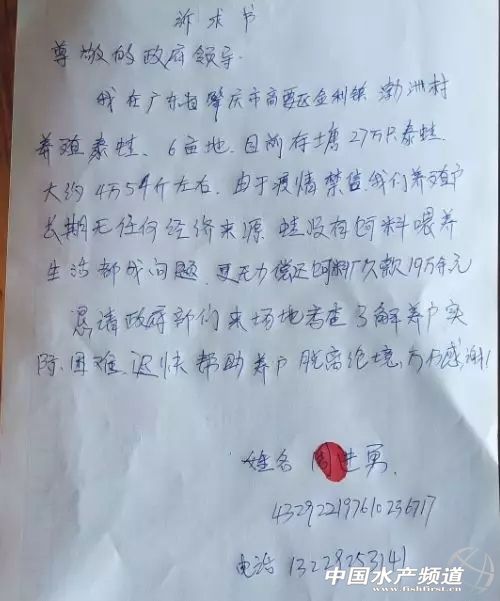 诉求书
尊敬的政府领导.
我在广东省肇庆市高要区金利镇渤洲村
养殖泰蛙. 6亩地. 目前存塘27万只泰蛙.
大约4万5千斤左右. 由于疫情禁售. 我们养殖户
长期无任何经济来源. 蛙没有饲料喂养
生活都成问题. 更无力偿还饲料厂欠款19万余元
恳请政府部们来场地考查了解养户实
际困难. 迟快帮助养户脱离绝境. 万分感谢!
姓名 周进勇.
电话
中国水产频道
www.fishfirst.cn